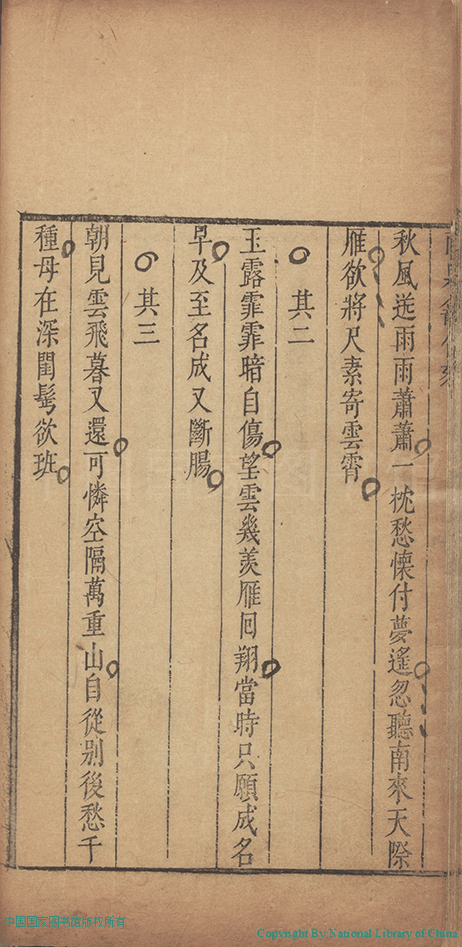 秋風送雨雨蕭蕭一枕愁懷付夢遙忽聽南來天際
雁欲將尺素寄雲霄
其二
玉露霏霏暗自傷望雲幾羡雁回翔當時只願成名
早及至名成又斷腸
其三
朝見雲飛暮又還可憐空隔萬重山自從别後愁千
種母在深閨髩欲班
中国国家图书馆版权所有
Copyright By National Library of China